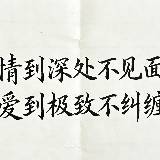 情到深处不见面
爱到极致不纠缠